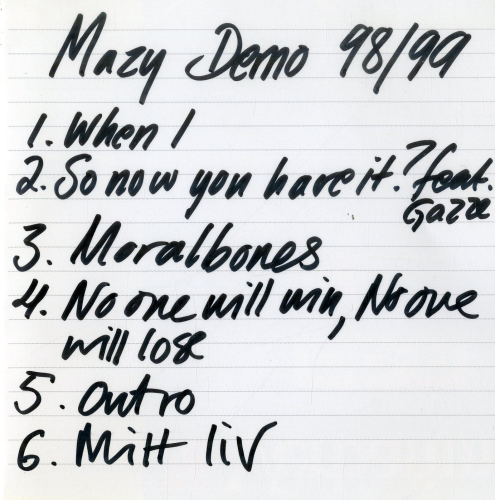 Mazy Demo 98/99
1. When I
2. So now you have it.? feat.
Gazze
3. Moralbones
4. No one will win, No one
will lose
5. Outro
6. Mitt liv